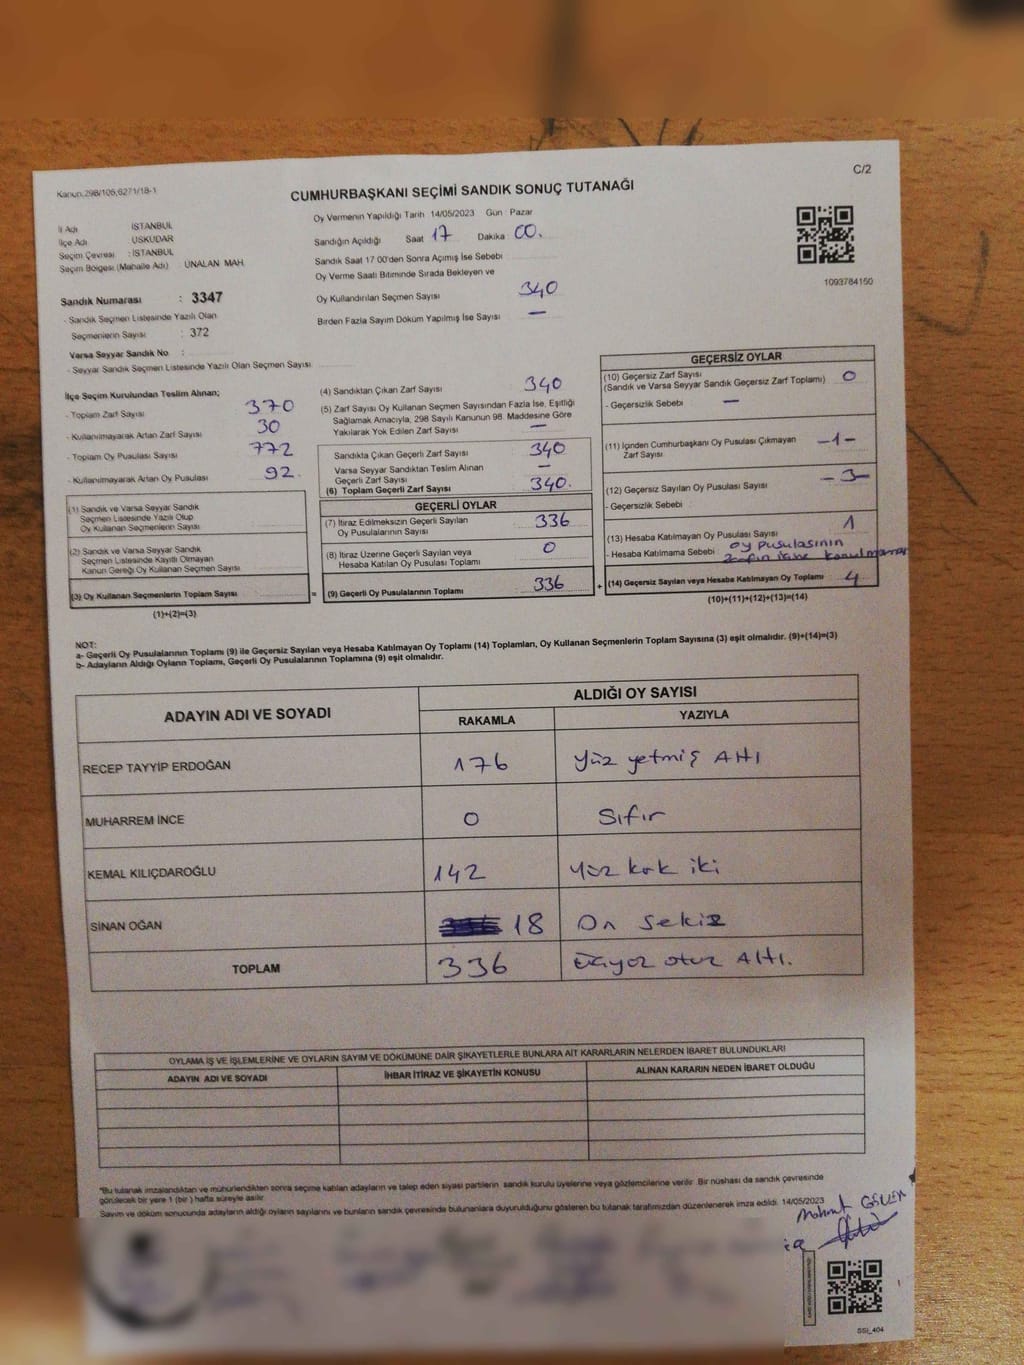 Kanun.298/106,6271/18-1
C/2
CUMHURBAŞKANI SEÇİMİ SANDIK SONUÇ TUTANAĞI
İl Adı İSTANBUL
İlçe Adı ÜSKÜDAR
Seçim Çevresi : İSTANBUL
Seçim Bölgesi (Mahalle Adı) ÜNALAN MAH.
Sandık Numarası : 3347
- Sandık Seçmen Listesinde Yazılı Olan
Seçmenlerin Sayısı : 372
Varsa Seyyar Sandık No :
- Seyyar Sandık Seçmen Listesinde Yazılı Olan Seçmen Sayısı
Oy Vermenin Yapıldığı Tarih 14/05/2023 Gün Pazar
Sandığın Açıldığı Saat 17 Dakika 00.
Sandık Saat 17 00'den Sonra Açımış İse Sebebi
Oy Verme Saati Bitiminde Sırada Bekleyen ve
Oy Kullandırılan Seçmen Sayısı 340
Birden Fazla Sayım Döküm Yapılmış İse Sayısı —
1093784150
İlçe Seçim Kurulundan Teslim Alınan;
- Toplam Zarf Sayısı 370
- Kullanılmayarak Artan Zarf Sayısı 30
- Toplam Oy Pusulası Sayısı 772
- Kullanılmayarak Artan Oy Pusulası 92.
(1) Sandık ve Varsa Seyyar Sandık
Seçmen Listesinde Yazılı Olup
Oy Kullanan Seçmenlerin Sayısı
(2) Sandık ve Varsa Seyyar Sandık
Seçmen Listesinde Kayıtlı Olmayan
Kanun Gereği Oy Kullanan Seçmen Sayısı
(3) Oy Kullanan Seçmenlerin Toplam Sayısı
(1)+(2)=(3)
(4) Sandıktan Çıkan Zarf Sayısı 340
(5) Zarf Sayısı Oy Kullanan Seçmen Sayısından Fazla İse, Eşitliği
Sağlamak Amacıyla, 298 Sayılı Kanunun 98. Maddesine Göre
Yakılarak Yok Edilen Zarf Sayısı —
Sandıkta Çıkan Geçerli Zarf Sayısı 340
Varsa Seyyar Sandıktan Teslim Alınan
Geçerli Zarf Sayısı —
(6) Toplam Geçerli Zarf Sayısı 340.
GEÇERLİ OYLAR
(7) İtiraz Edilmeksizin Geçerli Sayılan
Oy Pusulalarının Sayısı 336
(8) İtiraz Üzerine Geçerli Sayılan veya
Hesaba Katılan Oy Pusulası Toplamı 0
= (9) Geçerli Oy Pusulalarının Toplamı 336 +
GEÇERSİZ OYLAR
(10) Geçersiz Zarf Sayısı
(Sandık ve Varsa Seyyar Sandık Geçersiz Zarf Toplamı) 0
- Geçersizlik Sebebi —
(11) İçinden Cumhurbaşkanı Oy Pusulası Çıkmayan
Zarf Sayısı -1-
(12) Geçersiz Sayılan Oy Pusulası Sayısı -3-
- Geçersizlik Sebebi
(13) Hesaba Katılmayan Oy Pusulası Sayısı 1
- Hesaba Katılmama Sebebi oy pusulasının
zarfın içine konulmaması
(14) Geçersiz Sayılan veya Hesaba Katılmayan Oy Toplamı 4
(10)+(11)+(12)+(13)=(14)
NOT:
a- Geçerli Oy Pusulalarının Toplamı (9) ile Geçersiz Sayılan veya Hesaba Katılmayan Oy Toplamı (14) Toplamları, Oy Kullanan Seçmenlerin Toplam Sayısına (3) eşit olmalıdır. (9)+(14)=(3)
b- Adayların Aldığı Oyların Toplamı, Geçerli Oy Pusulalarının Toplamına (9) eşit olmalıdır.
ADAYIN ADI VE SOYADI
ALDIĞI OY SAYISI
RAKAMLA YAZIYLA
RECEP TAYYİP ERDOĞAN 176 Yüz yetmiş Altı
MUHARREM İNCE 0 Sıfır
KEMAL KILIÇDAROĞLU 142 Yüz kırk iki
SİNAN OĞAN 18 On sekiz
TOPLAM 336 Üçyüz otuz Altı.
OYLAMA İŞ VE İŞLEMLERİNE VE OYLARIN SAYIM VE DÖKÜMÜNE DAİR ŞİKAYETLERLE BUNLARA AİT KARARLARIN NELERDEN İBARET BULUNDUKLARI
ADAYIN ADI VE SOYADI İHBAR İTİRAZ VE ŞİKAYETİN KONUSU ALINAN KARARIN NEDEN İBARET OLDUĞU
*Bu tutanak imzalandıktan ve mühürlendikten sonra seçime katılan adayların ve talep eden siyasi partilerin sandık kurulu üyelerine veya gözlemcilerine verilir. Bir nüshası da sandık çevresinde
görülecek bir yere 1 (bir ) hafta süreyle asılır.
Sayım ve döküm sonucunda adayların aldığı oyların sayılarını ve bunların sandık çevresinde bulunanlara duyurulduğunu gösteren bu tutanak tarafımızdan düzenlenerek imza edildi. 14/05/2023
Mahmut
SSİ_404